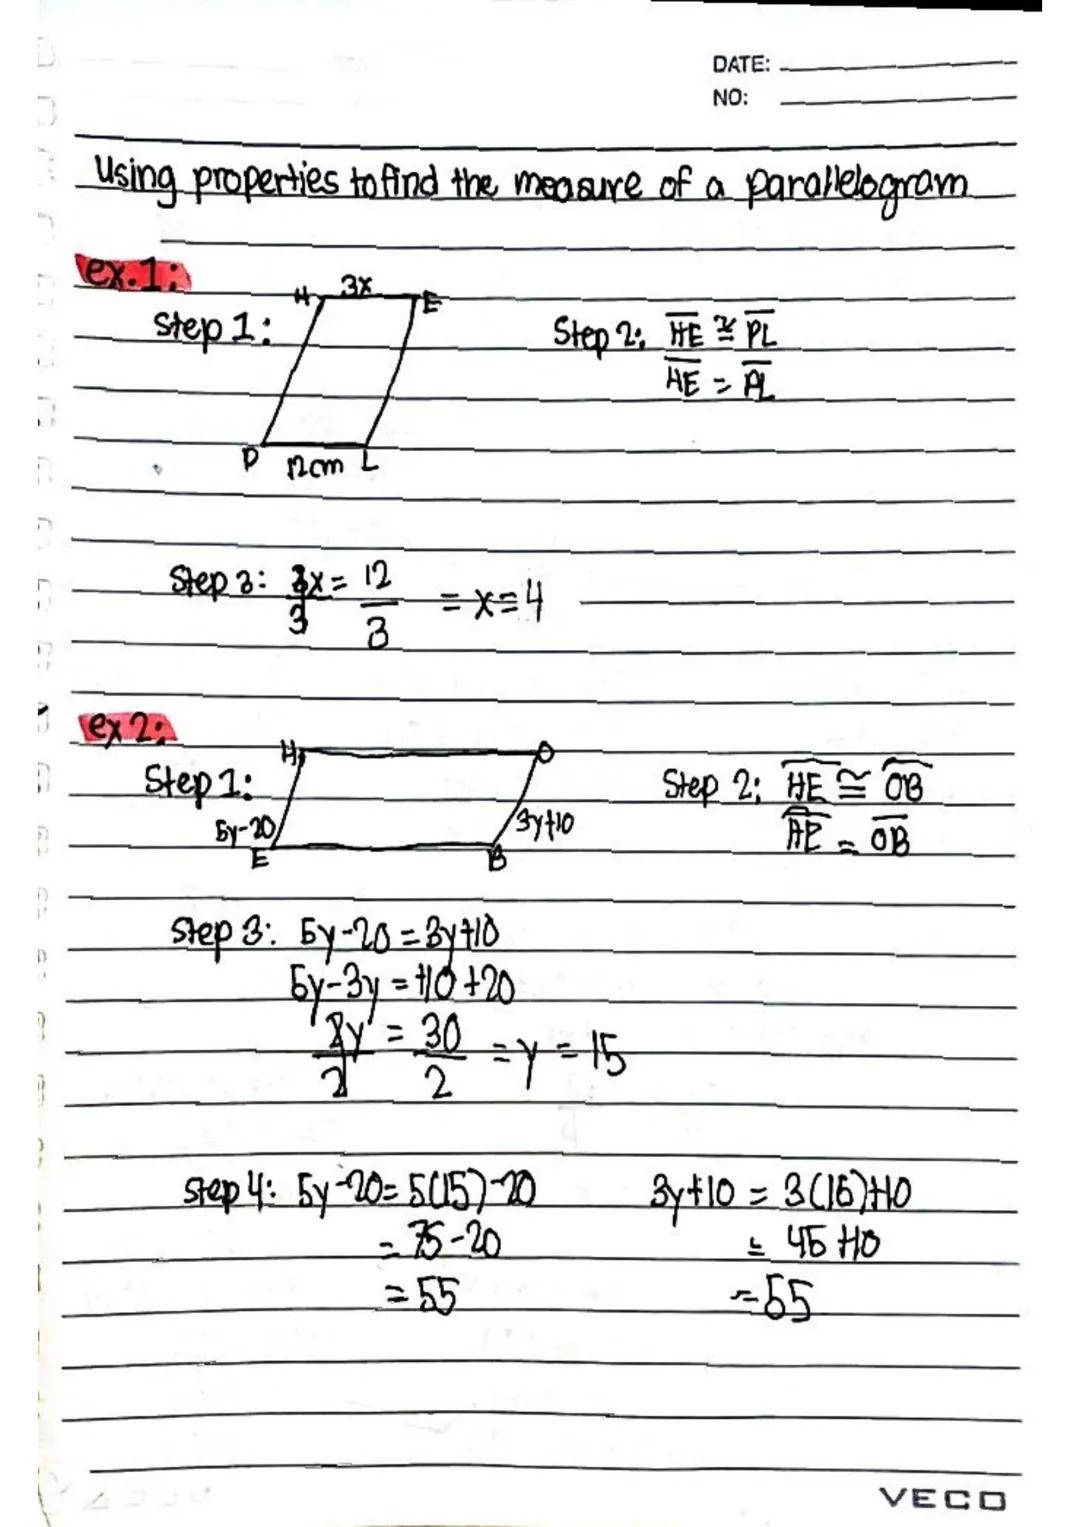 DATE:
NO:
Using properties to find the measure of a parallelogram
ex.1:
Step 1:
H 3x E
P 12cm L
Step 2: HE ≅ PL
HE = PL
Step 3: 3x/3 = 12/3 = x = 4
ex 2:
Step 1:
H O
5y-20 3y+10
E B
Step 2: HE ≅ OB
HE = OB
Step 3: 5y-20 = 3y+10
5y-3y = +10+20
2y/2 = 30/2 = y = 15
Step 4: 5y-20 = 5(15)-20 3y+10 = 3(15)+10
= 75-20 = 45+10
= 55 = 55
VECO